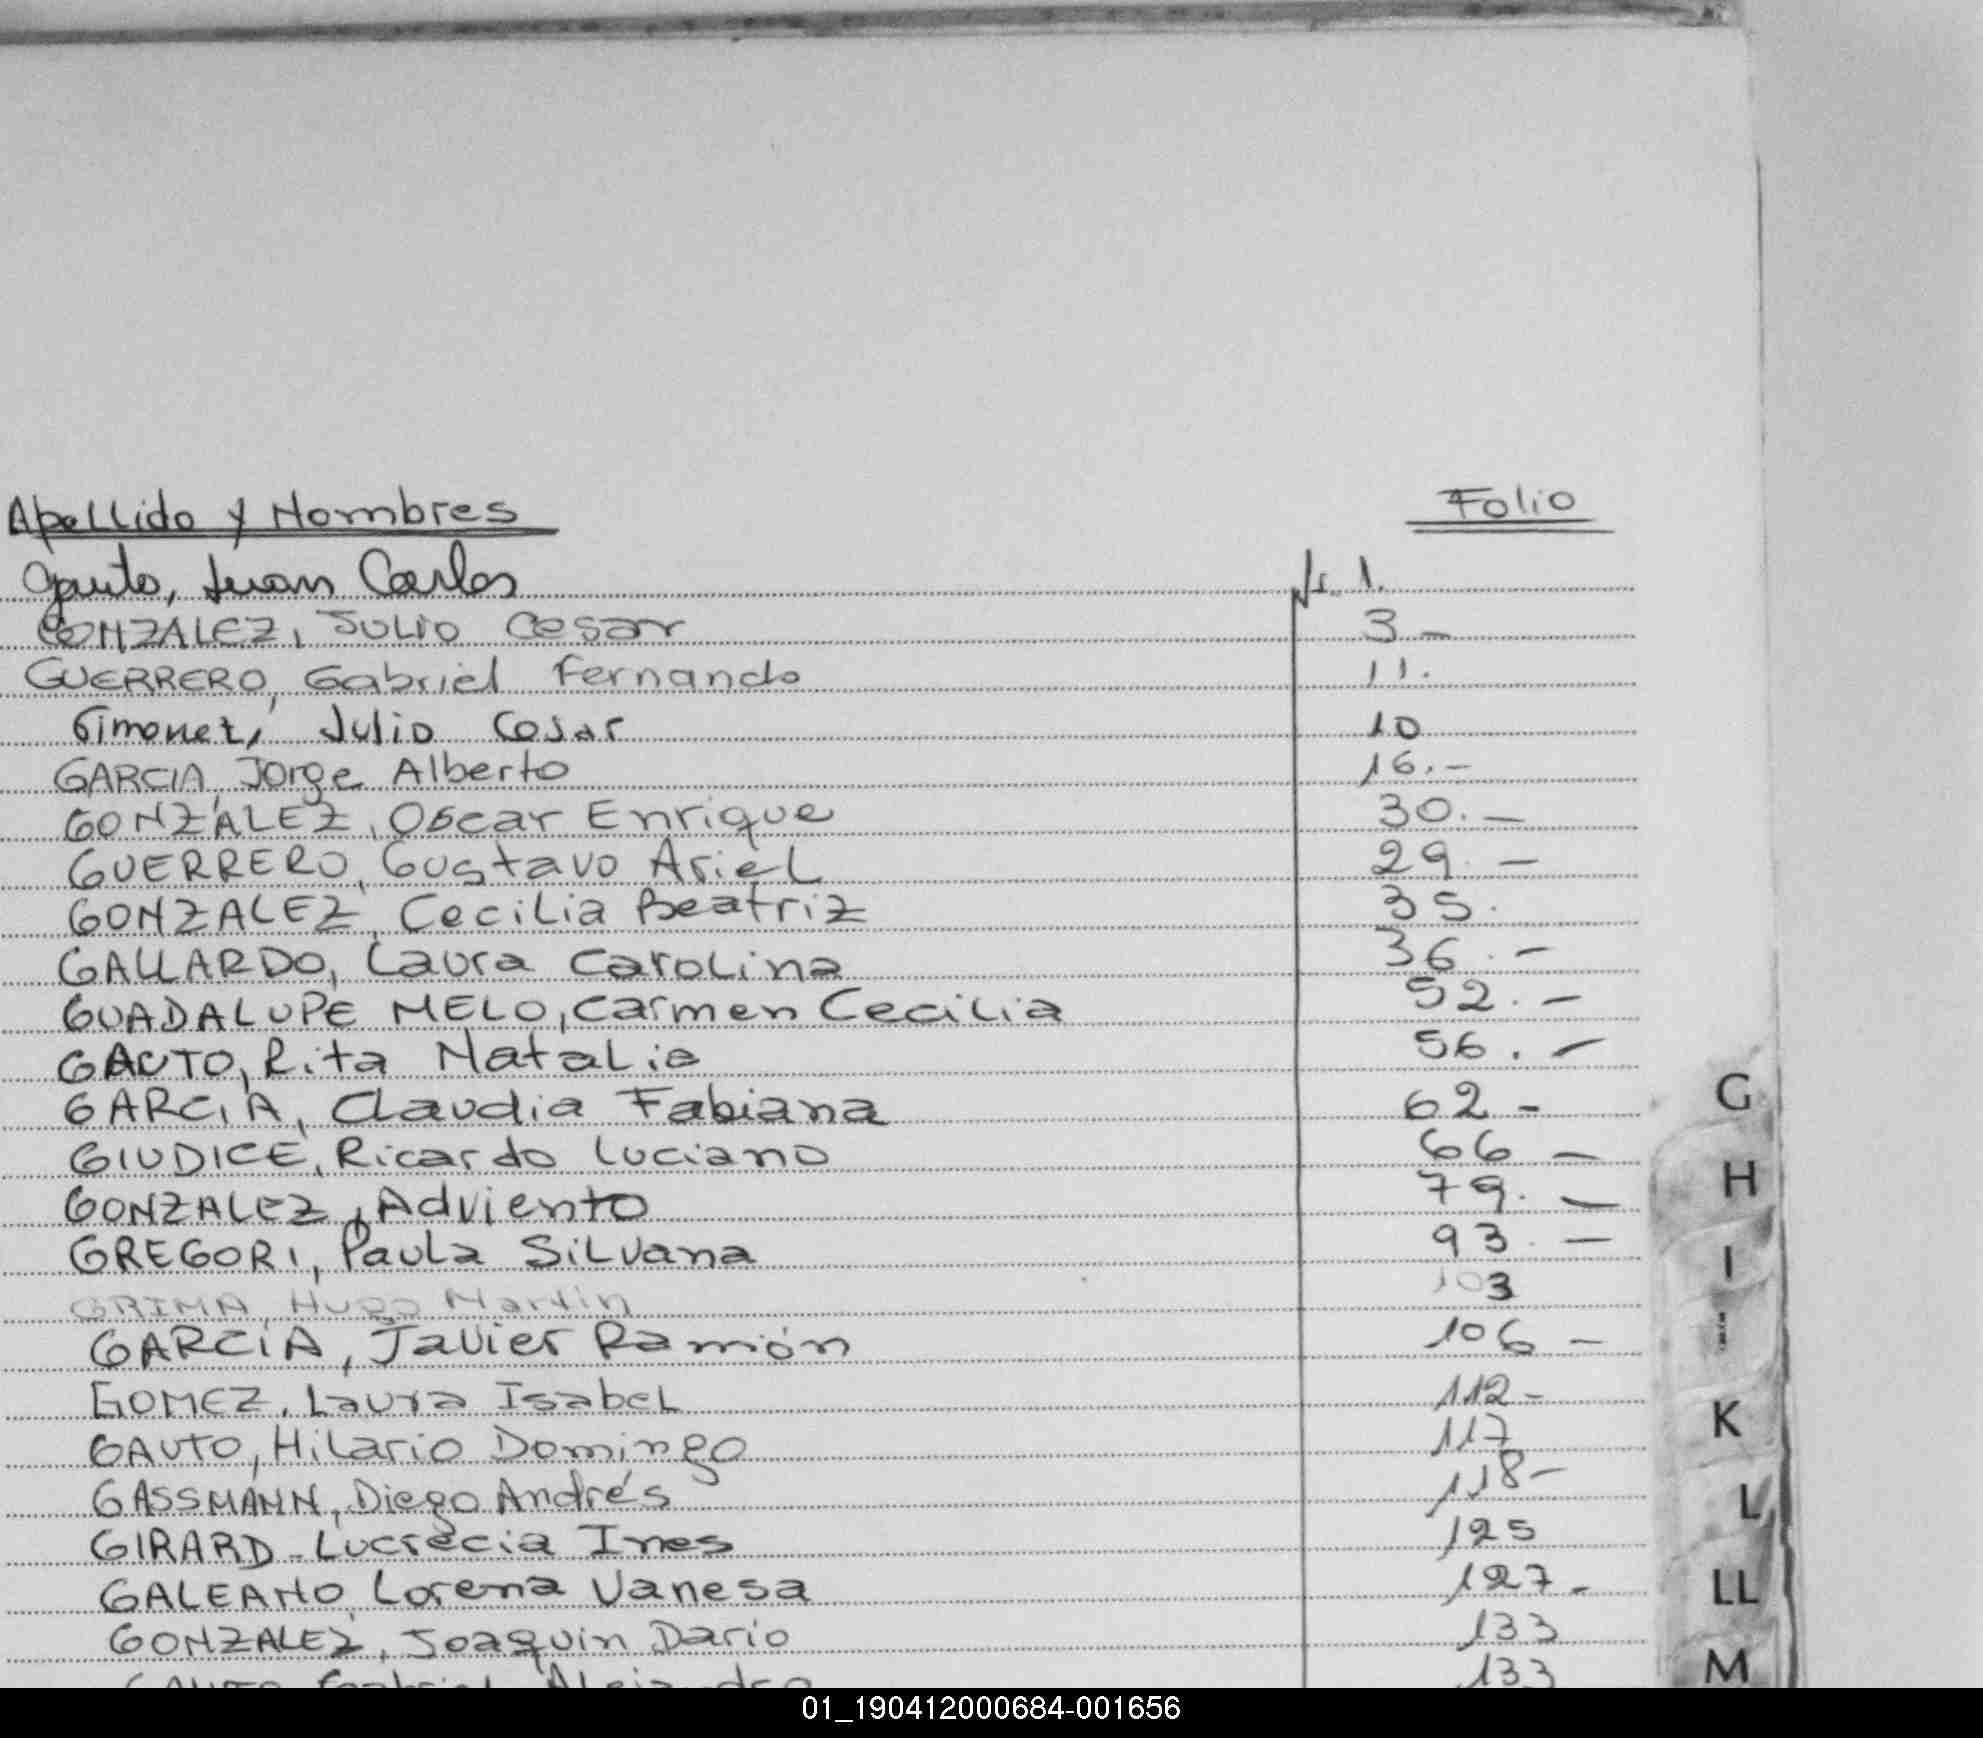 Apellido y Nombres Folio
Gauto, Juan Carlos 1.
GONZALEZ, JULIO Cesar 3 -
GUERRERO, Gabriel Fernando 11.
Gimenez, Julio Cesar 10
GARCIA, Jorge Alberto 16.-
GONZALEZ, Oscar Enrique 30.-
GUERRERO, Gustavo Ariel 29.-
GONZALEZ, Cecilia Beatriz 35.
GALLARDO, Laura Carolina 36.-
GUADALUPE MELO, Carmen Cecilia 52.-
GAUTO, Rita Natalia 56.-
GARCIA, Claudia Fabiana 62-
GIUDICE, Ricardo Luciano 66-
GONZALEZ, Adviento 79.-
GREGORI, Paula Silvana 93.-
GRIMA, Hugo Martin 103
GARCIA, Javier Ramón 106-
GOMEZ, Laura Isabel 112-
GAUTO, Hilario Domingo 117
GASSMANN, Diego Andrés 118-
GIRARD-Lucrecia Ines 125
GALEANO, Lorena Vanesa 127-
GONZALEZ, Joaquin Dario 133
GAUTO Gabriel Alejandro 133
G
H
I
K
L
LL
M
01_190412000684-001656